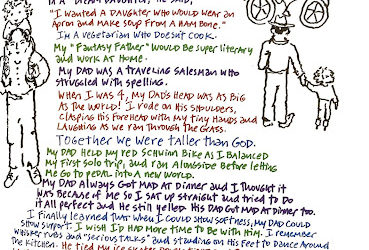 in a "Dream Daughter," he said,
"I wanted a Daughter who would wear an
Apron and make soup from a Ham Bone."
I'm a vegetarian who doesn't cook.
My "Fantasy Father" would be super literary
and work at home.
My Dad was a traveling salesman who
struggled with spelling.
When I was 4, my Dad's head was as big
as the world! I rode on his shoulders,
clasping his forehead with my tiny hands and
laughing as we ran through the grass.
Together we were taller than God.
My Dad held my red Schwinn Bike as I Balanced
my first solo trip, and ran alongside Before letting
me go to pedal into a new world.
My Dad always got mad at Dinner and I thought it
was Because of me so I sat up straight and tried to do
it all perfect and he still yelled. His Dad got mad at Dinner too.
I finally learned that when I could show softness, my Dad could
show support. I wish I'd had more time to be with him. I remember
whisker rubs and "serious talks" and standing on his feet to Dance around
the kitchen. He tied my ice